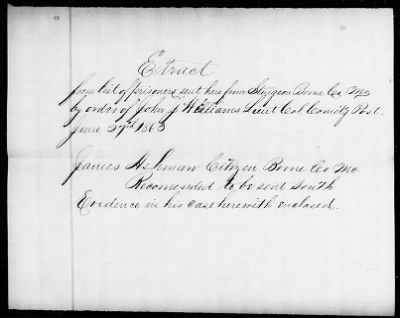 Etract
from list of prisoners sent here from Sturgeon Boone Co Mo
by order of John F Williams Lieut Col Comdg Post
June 27th 1863
James A Leman Citizen Boone Co Mo.
Recomended to be sent South
Evidence in his case herewith enclosed.